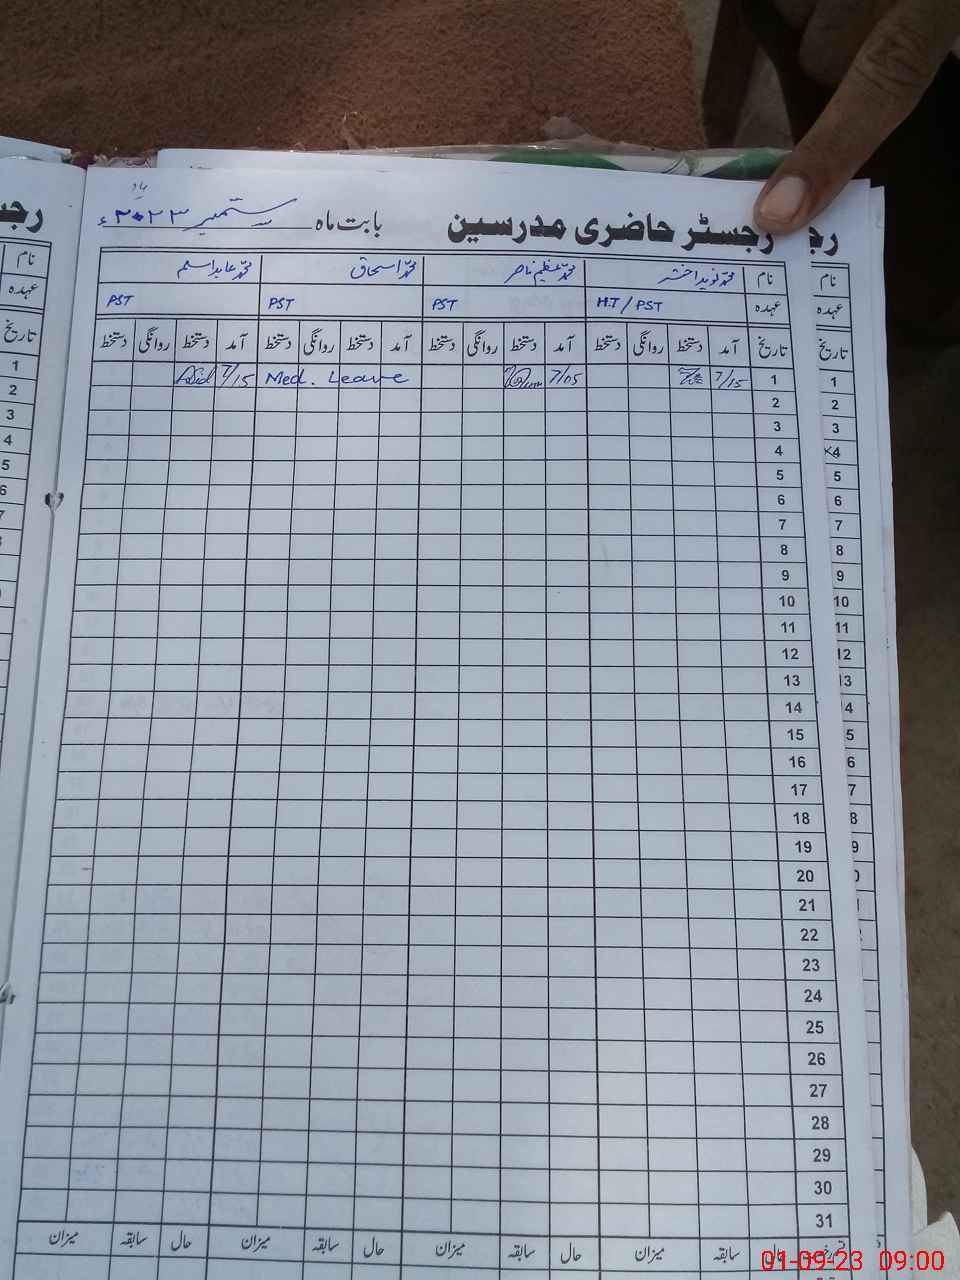 رجسٹر حاضری مدرسین بابت ماہ ستمبر ۲۰۲۳ء
نام محمد نوید اختر محمد عظیم ناصر محمد اسحاق محمد عابد اسلم
عہدہ H.T / PST PST PST PST
تاریخ آمد دستخط روانگی دستخط آمد دستخط روانگی دستخط آمد دستخط روانگی دستخط آمد دستخط روانگی دستخط
1 7/15 7/05 Med. Leave 7/15
2
3
4
5
6
7
8
9
10
11
12
13
14
15
16
17
18
19
20
21
22
23
24
25
26
27
28
29
30
31
حال سابقہ میزان حال سابقہ میزان حال سابقہ میزان حال سابقہ میزان
نام
عہدہ
تاریخ
1
2
3
4
5
6
7
8
9
10
11
12
01-09-23 09:00